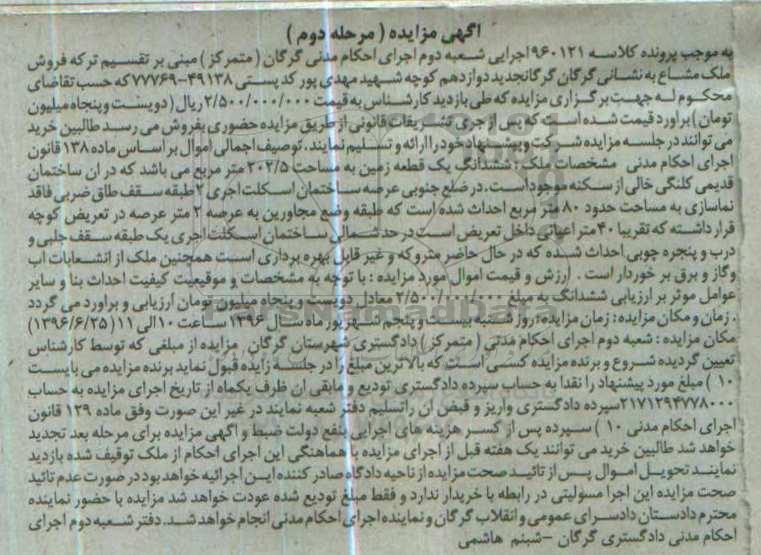 اگهی مزایده ( مرحله دوم )
به موجب پرونده کلاسه ۹۶۰۱۲۱ اجرایی شعبه دوم اجرای احکام مدنی گرگان ( متمرکز ) مبنی بر تقسیم ترکه فروش
ملک مشاع به نشانی گرگان گرگانجدید دوازدهم کوچه شهید مهدی پور کد پستی ۴۹۱۳۸-۷۷۷۶۹ که حسب تقاضای
محکوم له جهت برگزاری مزایده که طی بازدید کارشناس به قیمت ۲/۵۰۰/۰۰۰/۰۰۰ ریال ( دویست و پنجاه میلیون
تومان ) براورد قیمت شده است که پس از جری تشریفات قانونی از طریق مزایده حضوری بفروش می رسد طالبین خرید
می توانند در جلسه مزایده شرکت و پیشنهاد خود را ارائه و تسلیم نمایند . توصیف اجمالی اموال بر اساس ماده ۱۳۸ قانون
اجرای احکام مدنی مشخصات ملک : ششدانگ یک قطعه زمین به مساحت ۲۰۲/۵ متر مربع می باشد که در ان ساختمان
قدیمی کلنگی خالی از سکنه موجود است . در ضلع جنوبی عرصه ساختمان اسکلت اجری ۲ طبقه سقف طاق ضربی فاقد
نماسازی به مساحت حدود ۸۰ متر مربع احداث شده است که طبقه وضع مجاورین به عرصه ۲ متر عرصه در تعریض کوچه
قرار داشته که تقریبا ۴۰ متر اعیانی داخل تعریض است در حد شمالی ساختمان اسکلت اجری یک طبقه سقف حلبی و
درب و پنجره چوبی احداث شده که در حال حاضر متروکه و غیر قابل بهره برداری است همچنین ملک از انشعابات اب
وگاز و برق بر خوردار است . ارزش و قیمت اموال مورد مزایده : با توجه به مشخصات و موقیعیت کیفیت احداث بنا و سایر
عوامل موثر بر ارزیابی ششدانگ به مبلغ ۲/۵۰۰/۰۰۰/۰۰۰ معادل دویست و پنجاه میلیون تومان ارزیابی و براورد می گردد
. زمان و مکان مزایده : زمان مزایده : روز شنبه بیست و پنجم شهریور ماه سال ۱۳۹۶ ساعت ۱۰ الی ۱۱ ( ۱۳۹۶/۶/۲۵ )
مکان مزایده : شعبه دوم اجرای احکام مدنی ( متمرکز ) دادگستری شهرستان گرگان . مزایده از مبلغی که توسط کارشناس
تعیین گردیده شروع و برنده مزایده کسی است که بالاترین مبلغ را در جلسه زایده قبول نماید برنده مزایده می بایست
۱۰ ) مبلغ مورد پیشنهاد را نقدا به حساب سپرده دادگستری تودیع و مابقی ان ظرف یکماه از تاریخ اجرای مزایده به حساب
۲۱۷۱۲۹۴۷۷۸۰۰۰ سپرده دادگستری واریز و قبض ان راتسلیم دفتر شعبه نمایند در غیر این صورت وفق ماده ۱۲۹ قانون
اجرای احکام مدنی ۱۰ ) سپرده پس از کسر هزینه های اجرایی بنفع دولت ضبط و اگهی مزایده برای مرحله بعد تجدید
خواهد شد طالبین خرید می توانند یک هفته قبل از اجرای مزایده با هماهنگی این اجرای احکام از ملک توقیف شده بازدید
نمایند تحویل اموال پس از تائید صحت مزایده از ناحیه دادگاه صادر کننده این اجرائیه خواهد بود در صورت عدم تائید
صحت مزایده این اجرا مسولیتی در رابطه با خریدار ندارد و فقط مبلغ تودیع شده عودت خواهد شد مزایده با حضور نماینده
محترم دادستان دادسرای عمومی و انقلاب گرگان و نماینده اجرای احکام مدنی انجام خواهد شد . دفتر شعبه دوم اجرای
احکام مدنی دادگستری گرگان - شبنم هاشمی
ParsNamadData